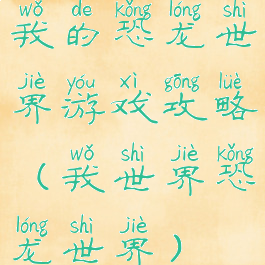 wǒ de kǒng lóng shì
我的恐龙世
jiè yóu xì gōng lüè
界游戏攻略
wǒ shì jiè kǒng
（我世界恐
lóng shì jiè
龙世界）